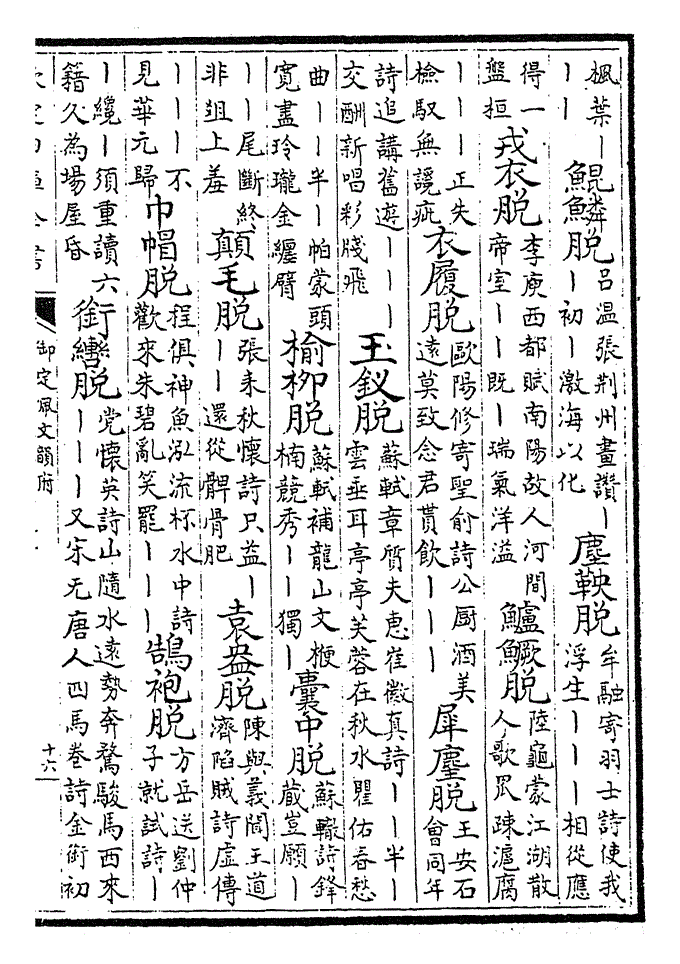 楓葉丨丨丨鯤鱗脱呂溫張荆州畫讚丨丨初丨激海以化塵鞅脱牟融寄羽士詩使我浮生丨丨丨相從應
得一盤桓戎衣脱李庾西都賦南陽故人河間帝室丨丨既丨瑞氣洋溢鱸鱖脱陸龜蒙江湖散人歌罛疎滬腐
丨丨丨正失檢馭無譏疵衣履脱歐陽修寄聖俞詩公厨酒美遠莫致念君貰飲丨丨丨犀麈脱王安石會同年
詩追講舊遊丨丨丨交酬新唱彩牋飛玉釵脱蘇軾章質夫惠崔徽真詩丨丨半丨雲垂耳亭亭芙蓉在秋水瞿佑春愁
曲丨丨半丨帕蒙頭寛盡玲瓏金纏臂榆柳脱蘇軾補龍山文楩楠競秀丨丨獨丨囊中脱蘇轍詩鋒蔵豈願丨
丨丨尾斷終非俎上羞顛毛脱張耒秋懷詩只益丨丨丨還從髀骨肥袁盎脱陳與義聞王道濟陷賊詩虚傳
丨丨丨不見華元歸巾帽脱程俱神魚泓流杯水中詩歡來朱碧亂笑罷丨丨丨鵠袍脱方岳送劉仲子就試詩丨
丨纜丨須重讀六籍久為場屋昏銜轡脱党懷英詩山隨水遠勢奔騖駿馬西來丨丨丨又宋无唐人四馬卷詩金銜初
欽定四庫全書
御定佩文韻府
十六